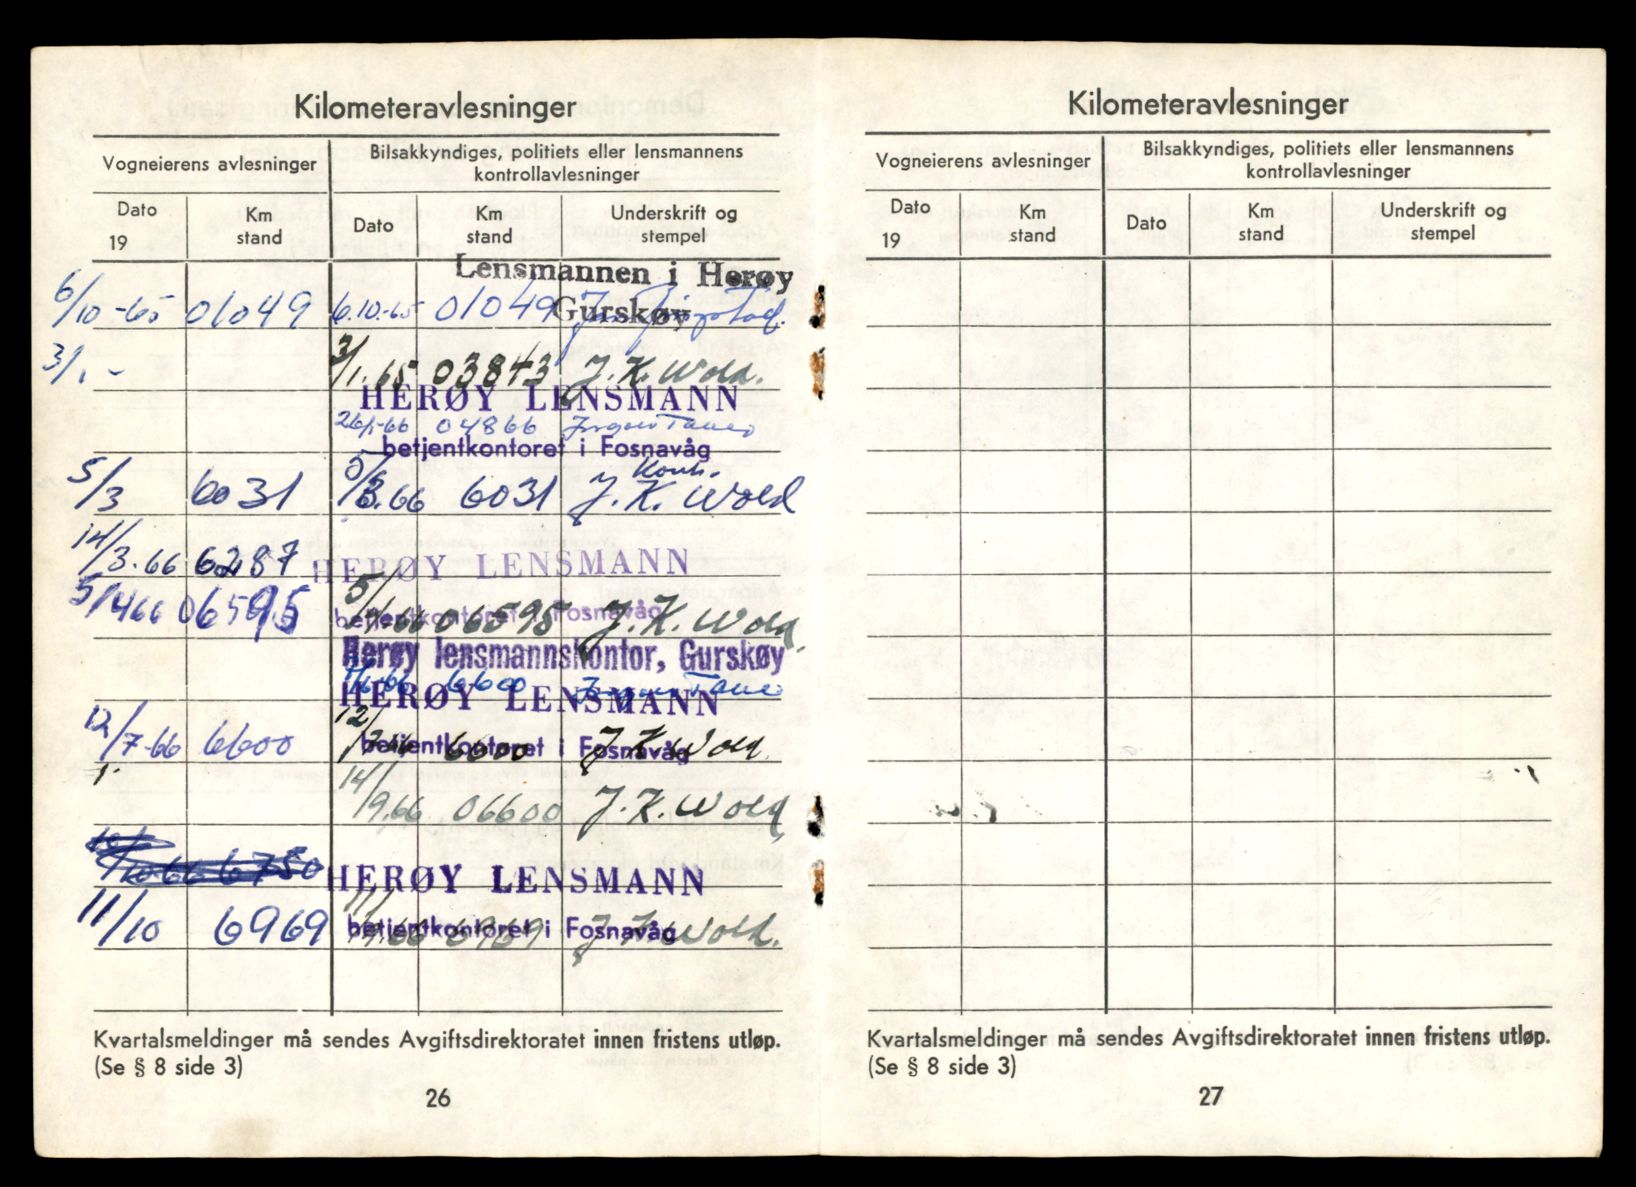 Kilometeravlesninger
Vogneierens avlesninger
Bilsakkyndiges, politiets eller lensmannens
kontrollavlesninger
Dato
19
Km
stand
Dato
Km
stand
Underskrift og
stempel
Lensmannen i Herøy
Gurskøy
6/10-65 01049 6.10-65 01049
3/1.- 3/1.65 03843 J. K. Wold.
HERØY LENSMANN
26/1-66 04866
betjentkontoret i Fosnavåg
5/3 6031 5/3.66 6031 J. K. Wold
14/3.66 6287
HERØY LENSMANN
5/4 66 06595 5/4.66 06595 J. K. Wold
betjentkontoret i Fosnavåg
Herøy lensmannskontor, Gurskøy
6600
HERØY LENSMANN
12/7-66 6600 12/7.66 6600 J. K. Wold.
betjentkontoret i Fosnavåg
14/9.66 06600 J. K. Wold
10/10 66 6750
HERØY LENSMANN
11/10 6969 6969 J. K. Wold.
betjentkontoret i Fosnavåg
Kvartalsmeldinger må sendes Avgiftsdirektoratet innen fristens utløp.
(Se § 8 side 3)
26
Kilometeravlesninger
Vogneierens avlesninger
Bilsakkyndiges, politiets eller lensmannens
kontrollavlesninger
Dato
19
Km
stand
Dato
Km
stand
Underskrift og
stempel
Kvartalsmeldinger må sendes Avgiftsdirektoratet innen fristens utløp.
(Se § 8 side 3)
27